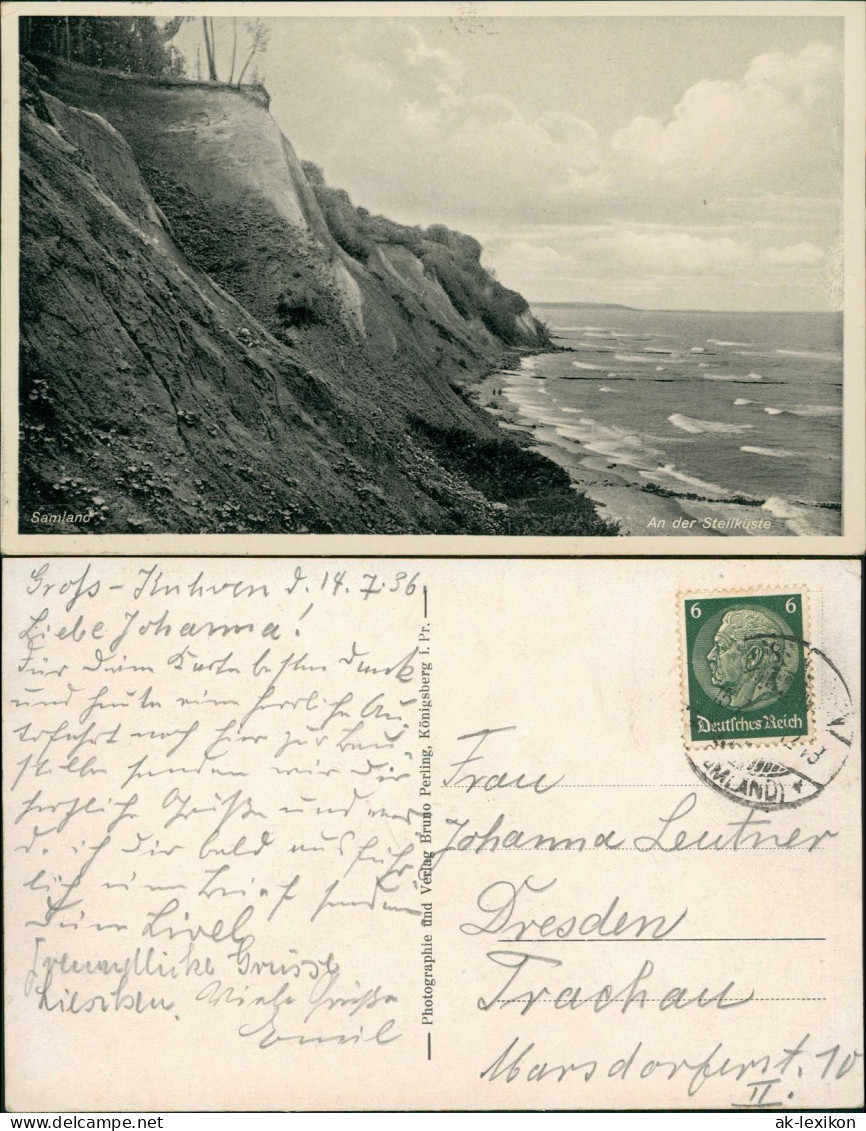 Samland
An der Steilküste
Groß-Kuhren d. 14.7.36.
Liebe Johanna!
Für Deine Karte besten Dank
und heute eine herrliche Au-
tofahrt nach hier zur
senden wir Dir
herzliche Grüße und werde
ich Dir bald ausführ-
lich einen Brief senden
Deine
Freundliche Grüsse
Lieschen. Viele Grüße
Emil
Photographie und Verlag Bruno Perling, Königsberg i. Pr.
6 6
Deutsches Reich
Frau
Johanna Leutner
Dresden
Trachau
Marsdorferst. 10
II.
ak-lexikon
ak-lexikon.de